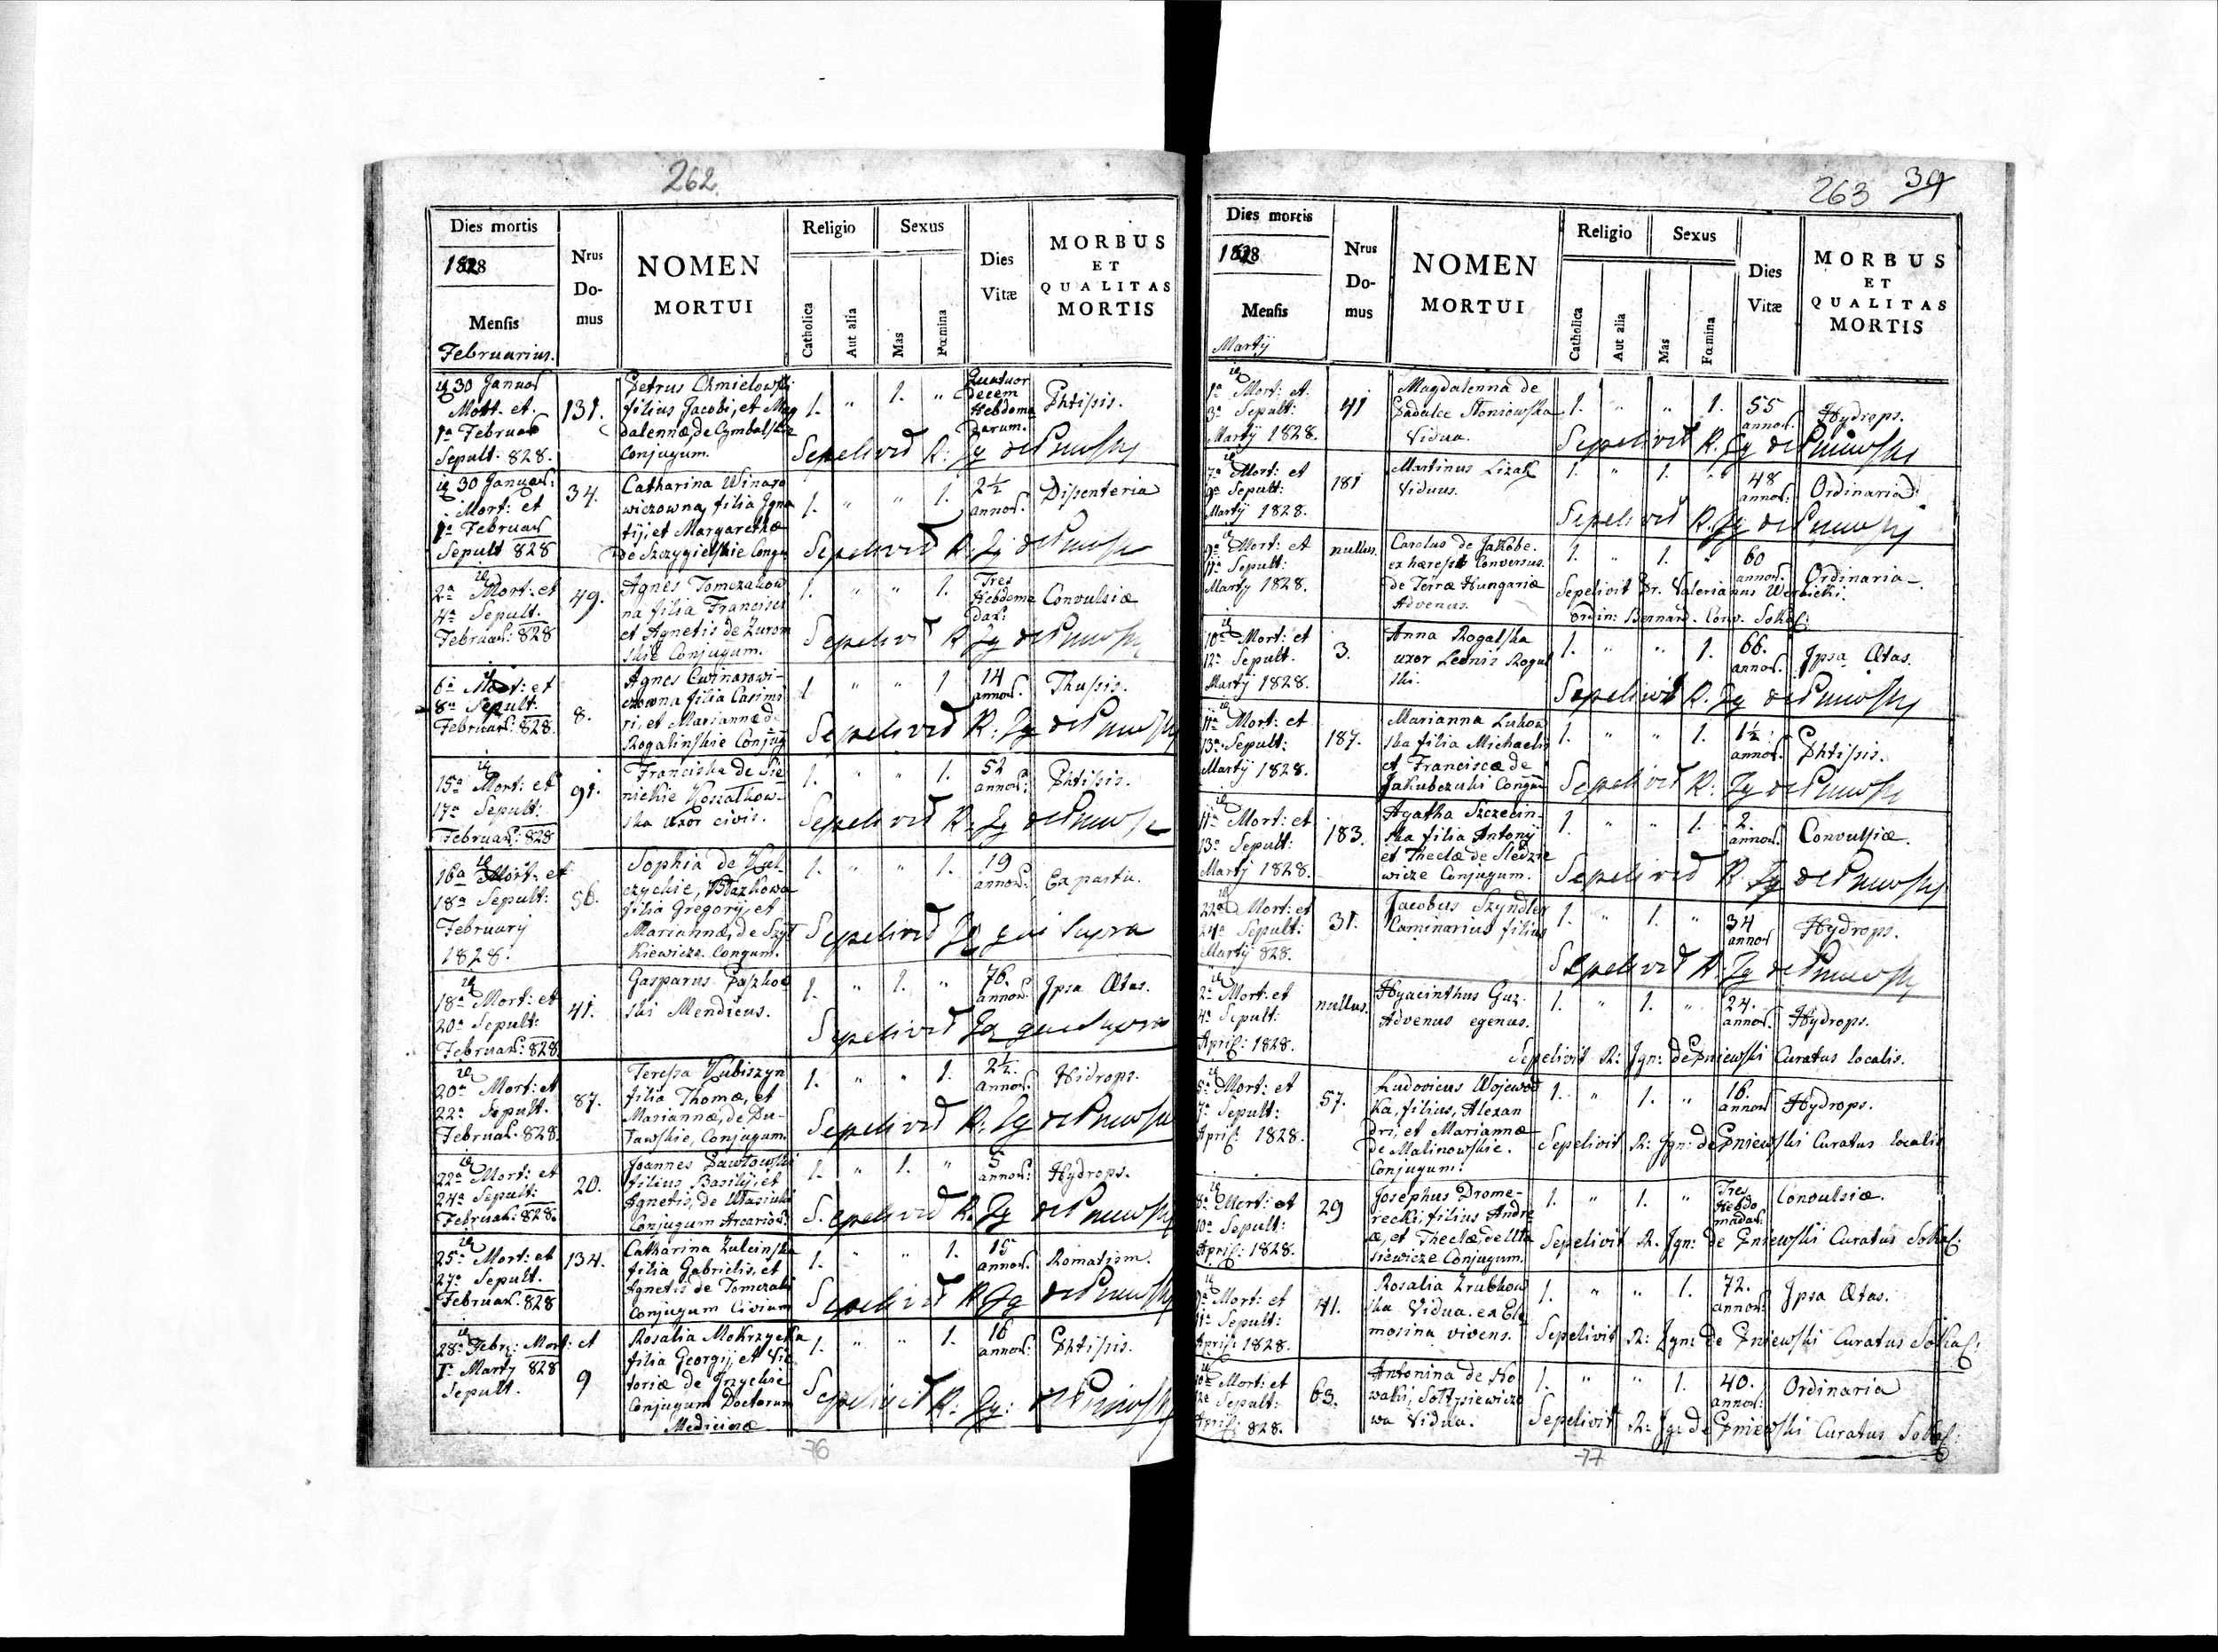 262.
Dies mortis
1828
Mensis
Februarius.
Nrus
Do-
mus
NOMEN
MORTUI
Religio
Catholica
Aut alia
Sexus
Mas
Fœmina
Dies
Vitæ
MORBUS
ET
QUALITAS
MORTIS
30 Januar
Mort. et
1a Februar
Sepult. 828.
131.
Petrus Chmielowski
filius Jacobi, et Mag
dalennæ, de Cymbalskie
Conjugum.
1. " 1. "
Quatuor
decem
Hebdoma
darum.
Phtisis.
Sepelivit R: Ig de Pniewski
30 Januar:
Mort: et
1a Februar
Sepult 828
34.
Catharina Winaro
wiczowna, filia Igna
tij, et Margarethæ
de Szczygielskie Conju
1. " " 1.
2½
annor.
Dissenteria
Sepelivit R: Ig de Pniewski
2a Mort: et
4a Sepult.
Februar: 828
49.
Agnes Tomczakow
na filia Francisci
et Agnetis de Zurom
skie Conjugum.
1. " " 1.
Tres
Hebdoma
dar:
Convulsiæ
Sepelivit R. Ig de Pniewski
6a Mort: et
8a Sepult.
Februar: 828.
8.
Agnes Cwinarowi-
czowna filia Casimi
ri, et Mariannæ de
Rogalinskie Conjug
1. " " 1
14
annor.
Thussis.
Sepelivit R: Ig de Pniewski
15a Mort: et
17a Sepult:
Februar: 828
91.
Franciska de Sie
nickie Koszalkow-
ska uxor civis.
1. " " 1.
52
annor:
Phtisis.
Sepelivit R. Ig de Pniewski
16a Mort: et
18a Sepult:
February
1828.
56.
Sophia de Kul-
czyckie, Blazkowa
filia Gregorij, et
Mariannæ, de Szyt
kiewicze. Congum.
1. " " 1.
19
annor:
Ex partu.
Sepelivit Ig qui supra
18a Mort: et
20a Sepult:
Februar: 828
41.
Gasparus Paszkow
ski Mendicus.
1. " 1. "
76.
annor.
Ipsa Ætas.
Sepelivit Ig qui supra
20a Mort: et
22a Sepult.
Februar. 828.
87.
Teressa Kubiszyn
filia Thomæ, et
Mariannæ, de Du-
tawskie, Conjugum.
1. " " 1.
2½.
annor.
Hidrops.
Sepelivit R: Ig de Pniewski
22a Mort: et
24a Sepult:
Februar: 828.
20.
Joannes Pawlowski
filius Basilij, et
Agnetis, de Utasiuki
Conjugum Arcarior:
1. " 1. "
5
annor:
Hydrops.
Sepelivit R. Ig de Pniewski
25a Mort: et
27a Sepult.
Februar. 828
134.
Catharina Zulcinska
filia Gabrielis, et
Agnetis de Tomczaki
Conjugum Civium
1. " " 1.
15
annor.
Romatism.
Sepelivit R Ig de Pniewski
28a Febr: Mort: et
1a Martij 828
Sepult.
9
Rosalia Mokrzycka
filia Georgij, et Vic
toriæ de Grzyckie
Conjugum Doctorum
Medicinæ.
1. " " 1.
16
annor:
Phtisis.
Sepelivit R: Ig: de Pniewski
76
263 39
Dies mortis
1828
Mensis
Martij
Nrus
Do-
mus
NOMEN
MORTUI
Religio
Catholica
Aut alia
Sexus
Mas
Fœmina
Dies
Vitæ
MORBUS
ET
QUALITAS
MORTIS
1a Mort: et
3a Sepult:
Martij 1828.
41
Magdalenna de
Padulce Stoniowska
Vidua.
1. " " 1.
55
annor.
Hydrops.
Sepelivit R. Ig de Pniewski
7a Mort: et
9a Sepult:
Martij 1828.
181
Martinus Lizak
Viduus.
1. " 1. "
48
annor:
Ordinaria.
Sepelivit R. Ig de Pniewski
9a Mort: et
11a Sepult:
Martij 1828.
nullus.
Carolus de Jakobe.
ex hæresit Conversus.
de Terræ Hungariæ
Advenus.
1. " 1. "
60
annor.
Ordinaria.
Sepelivit Fr. Valerianus Werbicki.
Ordin: Bernard. Conv. Sokal:
10a Mort: et
12a Sepult.
Martij 1828.
3.
Anna Rogalska
uxor Leonis Rogal
ski.
1. " " 1.
66.
annor.
Ipsa Ætas.
Sepelivit R. Ig de Pniewski
11a Mort: et
13a Sepult:
Martij 1828.
187.
Marianna Lukow
ska filia Michaelis
et Franciscæ de
Jakubczuki Congum
1. " " 1.
1½
annor.
Phtisis.
Sepelivit R: Ig de Pniewski
11a Mort: et
13a Sepult:
Martij 1828.
183.
Agatha Szczecin-
ska filia Antonij
et Theclæ de Sledzie
wicze Conjugum.
1. " " 1.
2.
annor.
Convulsiæ.
Sepelivit R Ig de Pniewski
22a Mort: et
24a Sepult:
Martij 828.
31.
Jacobus Szyndler
Caminarius filius
1. " 1. "
34
annor
Hydrops.
Sepelivit R: Ig de Pniewski
2a Mort: et
4a Sepult:
April: 1828.
nullus.
Hyacinthus Guz.
Advenus egenus.
1. " 1. "
24.
annor.
Hydrops.
Sepelivit R: Ign: de Pniewski Curatus localis.
5a Mort: et
7a Sepult:
April: 1828.
57.
Ludovicus Wojewod
ka, filius, Alexan
dri, et Mariannæ
de Malinowskie.
Conjugum.
1. " 1. "
16.
annor
Hydrops.
Sepelivit R: Ign: de Pniewski Curatus localis
8a Mort: et
10a Sepult:
April: 1828.
29
Josephus Drome-
recki, filius Andre
æ, et Theclæ, de Uta
siewicze Conjugum.
1. " 1. "
Tres
Hebdo
madar:
Convulsiæ.
Sepelivit R. Ign: de Pniewski Curatus Sokal:
9a Mort: et
11a Sepult:
April: 1828.
41.
Rosalia Zrubkow
ska Vidua. ex Ele
mosina vivens.
1. " " 1.
72.
annor:
Ipsa Ætas.
Sepelivit R: Ign: de Pniewski Curatus Sokal:
10a Mort: et
12a Sepult:
April: 828.
63.
Antonina de No
waki, Soltysiewiczo
wa Vidua.
1. " " 1.
40.
annor:
Ordinaria
Sepelivit R: Ign: de Pniewski Curatus Sokal:
77